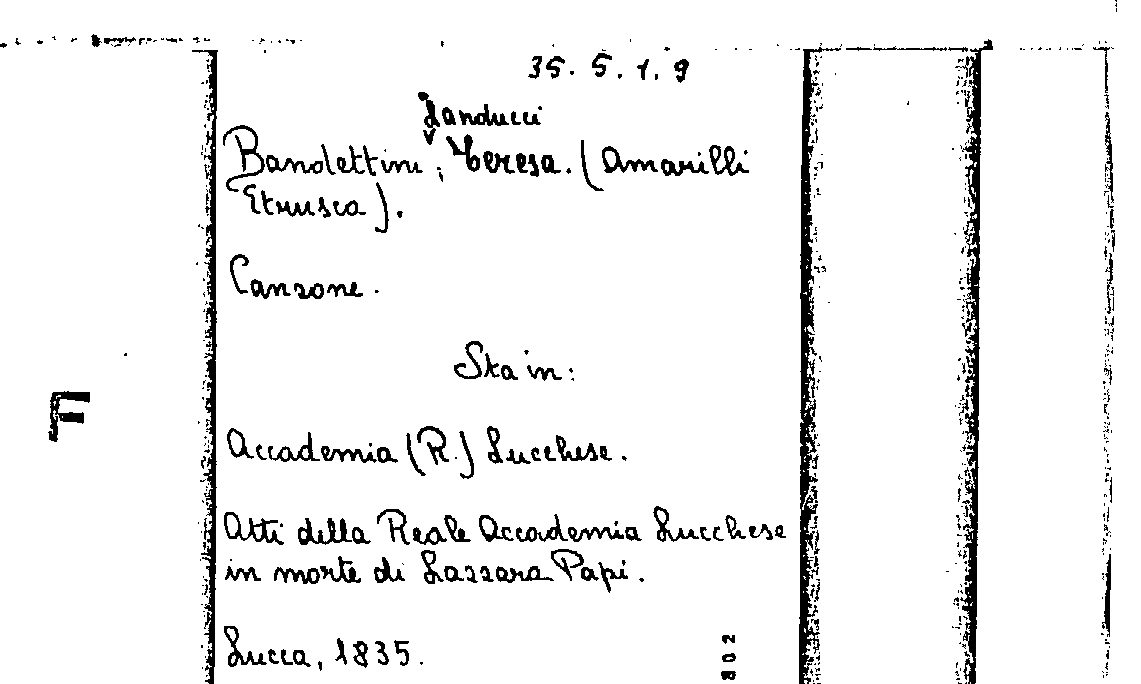 35. 5. 1. 9
Landucci
Bandettini, Teresa. (Amarilli
Etrusca).
Canzone.
Sta in:
F
Accademia (R.) Lucchese.
Atti della Reale Accademia Lucchese
in morte di Lazzara Papi.
Lucca, 1835.
802